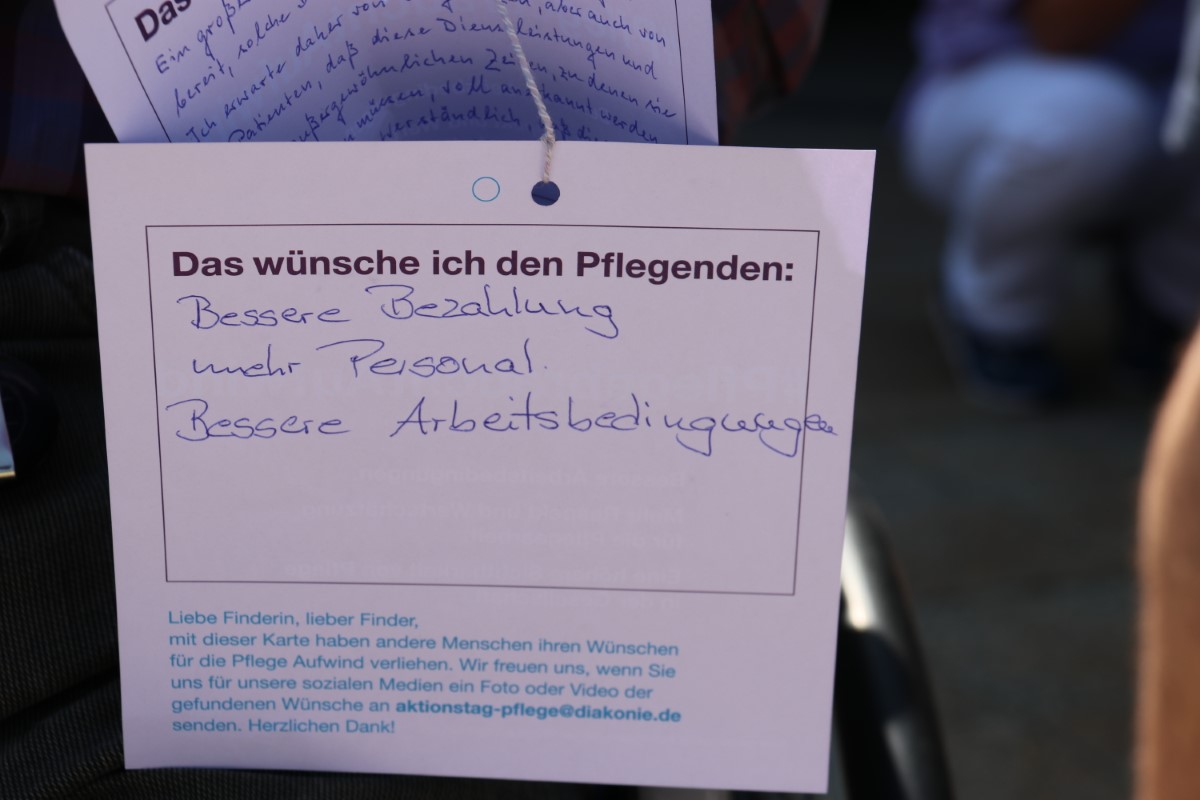 Das
Ein groß
bereit, solche
Ich erwarte daher von aber auch von
Patienten, daß diese Dienstleistungen und
außergewöhnlichen Zeiten, zu denen sie
müssen, voll anerkannt werden
verständlich, daß
Das wünsche ich den Pflegenden:
Bessere Bezahlung
mehr Personal.
Bessere Arbeitsbedingungen
Liebe Finderin, lieber Finder,
mit dieser Karte haben andere Menschen ihren Wünschen
für die Pflege Aufwind verliehen. Wir freuen uns, wenn Sie
uns für unsere sozialen Medien ein Foto oder Video der
gefundenen Wünsche an aktionstag-pflege@diakonie.de
senden. Herzlichen Dank!